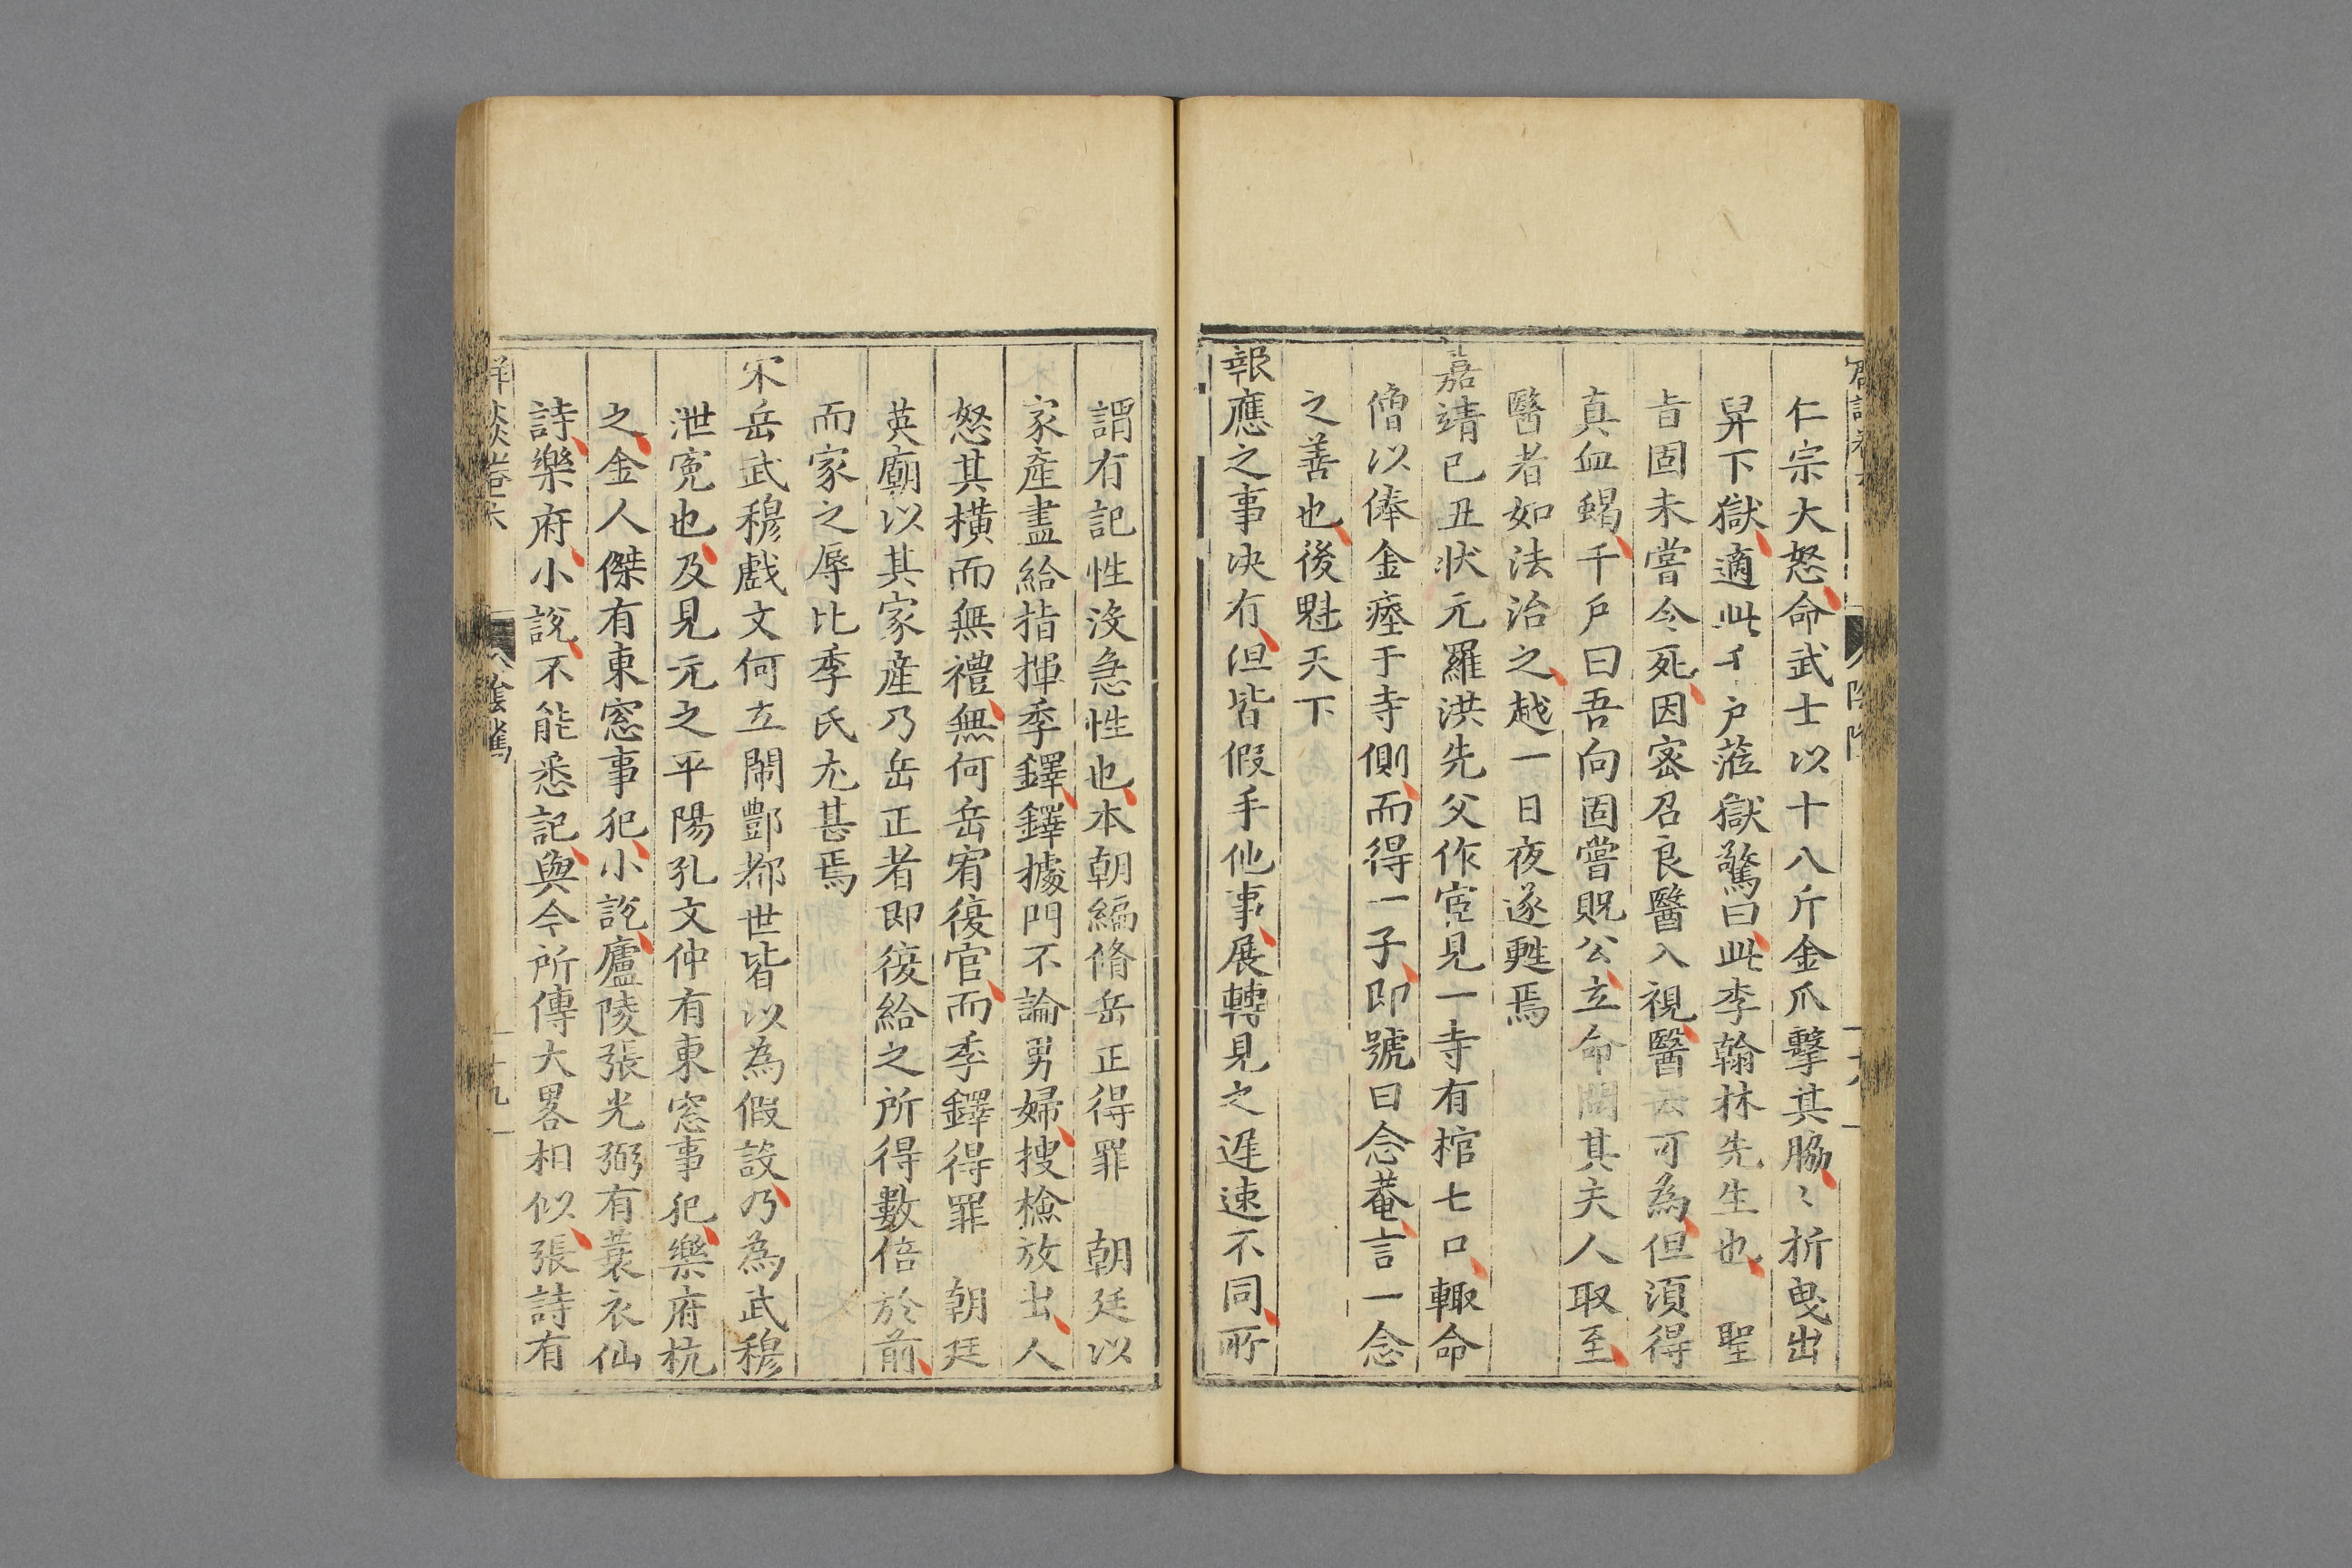 仁宗大怒命武士以十八斤金爪擊其脇〻折曳出
舁下獄適此千户蒞獄驚曰此李翰林先生也 聖
㫖固未嘗令死因宻召良醫入視醫云可為但湏得
真血蝎千戶曰吾向固嘗貺公立命問其夫人取至
醫者如法治之越一日夜遂甦焉
嘉靖已丑状元羅洪先父作宦見一寺有棺七口輙命
僧以俸金瘞于寺側而得一子即號曰念菴言一念
之善也後魁天下
報應之事决有但皆假手他事展轉見之遅速不同所
謂有記性沒急性也本朝編脩岳正得罪 朝廷以
家產盡給指揮季鐸鐸據門不論男婦搜檢放出人
怒其横而無禮無何岳宥復官而季鐸得罪 朝廷
英廟以其家産乃岳正者即復給之所得數倍於前
而家之辱比季氏尤甚焉
宋岳武穆戲文何立鬧酆都世皆以為假設乃為武穆
泄寃也及見元之平陽孔文仲有東窓事犯樂府杭
之金人傑有東窓事犯小說廬陵張光弼有蓑衣仙
詩樂府小說不能悉記與今所傳大畧相似張詩有
卷六
陰隲
十九